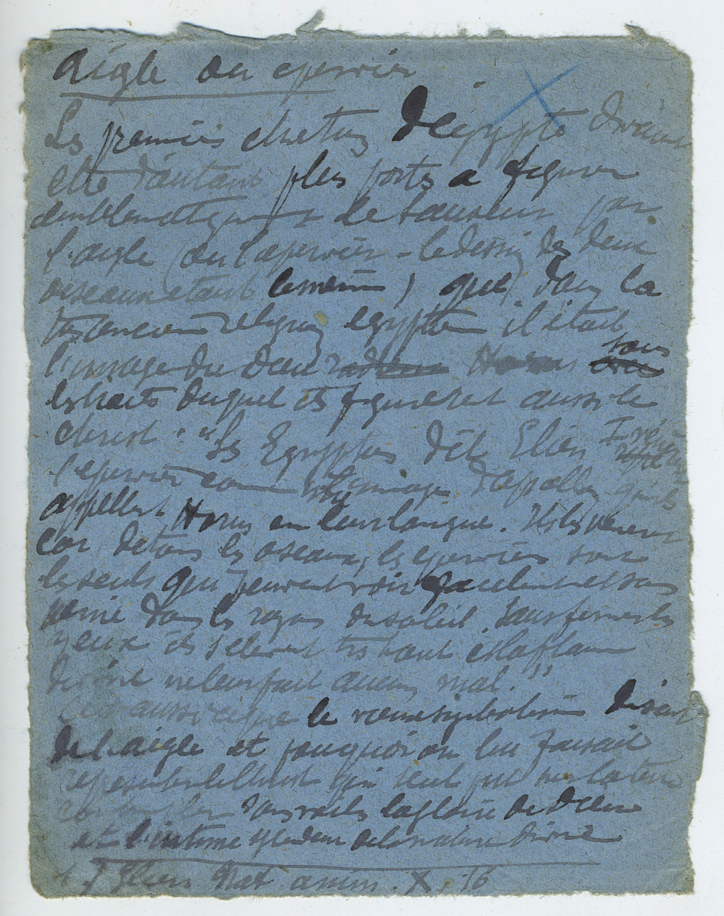 aigle ou epervier
Les premiers chretiens d'égypte devaient
etre d'autant plus portés a figurer
emblematiquement le sauveur par
l'aigle (ou l'epervier - le dessin des deux
oiseaux etant le meme) que dans la
tres ancienne religion egyptienne il était
l'image du dieu Horus sous
les traits duquel ils figurerent aussi le
christ. "Les Egyptiens dit Elien
l'epervier comme image d'apollon qu'ils
appellent Horus en leur langue. Ils les
car de tous les oiseaux, les eperviers sont
les seuls qui peuvent voir facilement et sans
peine dans les rayons du soleil. Sans fermer les
yeux ils s'elevent tres haut et la flamme
divine ne leur fait aucun mal."
C'est aussi ce que le vieux symbolisme disait
de l'aigle et pourquoi on lui faisait
representer le Christ qui seul put sur la terre
contempler sans voiles la gloire de Dieu
et l'intime splendeur de la nature divine
Elien Nat anim. X, 16